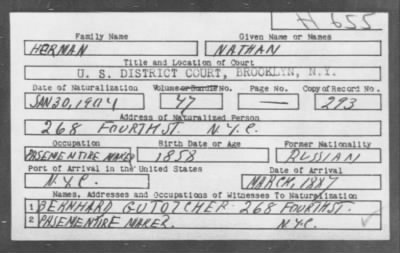 H 655
Family Name Given Name or Names
HERMAN NATHAN
Title and Location of Court
U. S. DISTRICT COURT, BROOKLYN, N.Y.
Date of Naturalization Volume or Bundle No. Page No. Copy of Record No.
JAN 30, 1904 47 — 293
Address of Naturalized Person
268 FOURTH ST. N.Y.C.
Occupation Birth Date or Age Former Nationality
PASEMENTIRE MAKER 1858 RUSSIAN
Port of Arrival in the United States Date of Arrival
N.Y.C. MARCH, 1887
Names, Addresses and Occupations of Witnesses To Naturalization
1 BERNHARD GUTOTCHER 268 FOURTH ST.
2 PASEMENTIRE MAKER. N.Y.C.